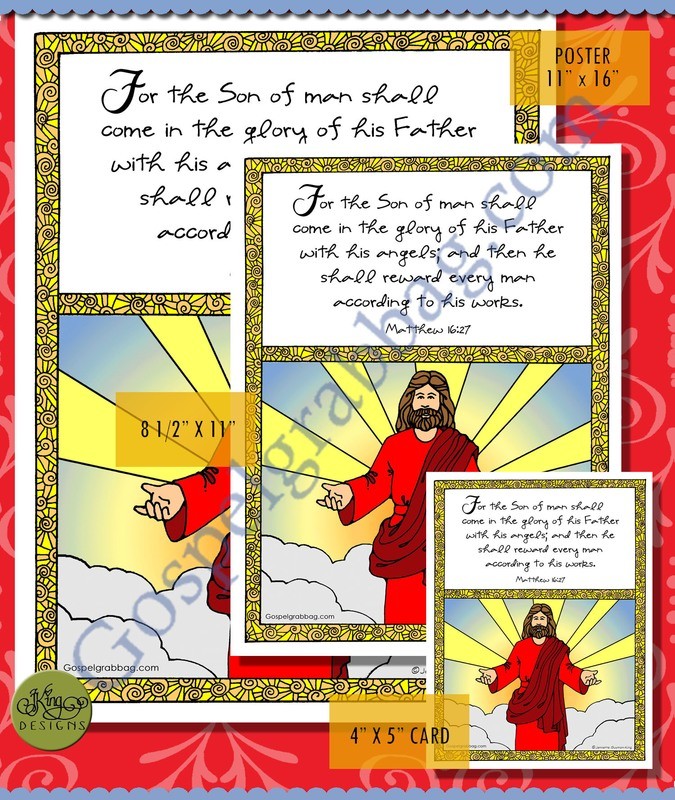 POSTER
11" x 16"
For the Son of man shall
come in the glory of his Father
with his a
shall r
accord
For the Son of man shall
come in the glory of his Father
with his angels; and then he
shall reward every man
according to his works.
Matthew 16:27
8 1/2" X 11"
For the Son of man shall
come in the glory of his Father
with his angels; and then he
shall reward every man
according to his works.
Matthew 16:27
Gospelgrabbag.com
Gospelgrabbag.com
Gospelgrabbag.com
JKing
DESIGNS
4" X 5" CARD